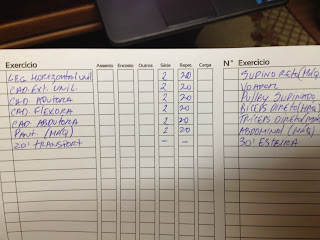 Exercício Assento Encosto Outros Série Repet. Carga N° Exercício
LEG HORIZONTAL Unil 2 20 SUPINO RETO (MÁQ)
CAD. EXT. UNIL. 2 20 VOADOR
CAD ADUTORA 2 20 PULLEY SUPINADO
CAD. FLEXORA 2 20 BICEPS DIRETO (MÁQ)
CAD ABDUTORA 2 20 TRÍCEPS DIRETO (MÁQ)
PANT. (MÁQ) 2 20 ABDOMINAL (MÁQ)
20' TRANSPORT - - 30' ESTEIRA